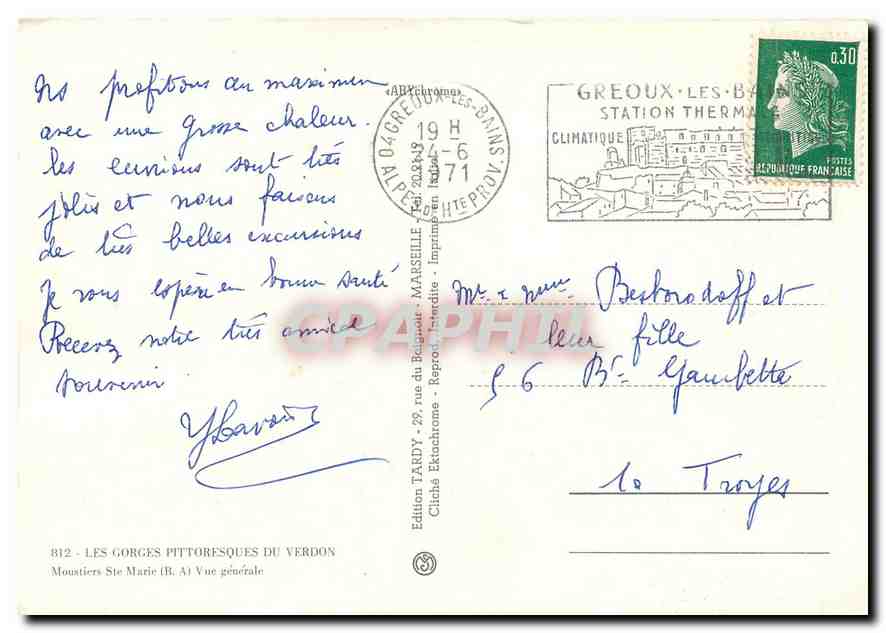 Ns profitons au maximum
avec une grosse chaleur.
les environs sont très
jolis et nous faisons
de très belles excursions
Je vous espère en bonne santé
Recevez notre très amical
souvenir
812 - LES GORGES PITTORESQUES DU VERDON
Moustiers Ste Marie (B. A) Vue générale
«ARYchrome»
Edition TARDY - 29, rue du Baignoir - MARSEILLE - Tél.
Cliché Ektochrome - Reprod. Interdite - Imprimé en Italie
04 GREOUX-LES-BAINS
19 H
24-6
1971
ALPES DE HTE PROV.
GREOUX·LES·BAINS
STATION THERMALE
CLIMATIQUE
0,30
POSTES
REPUBLIQUE FRANÇAISE
Mr. & Mme. Besborodoff et
leur fille
56 Bd. Gambetta
10 Troyes
CPAPHIL